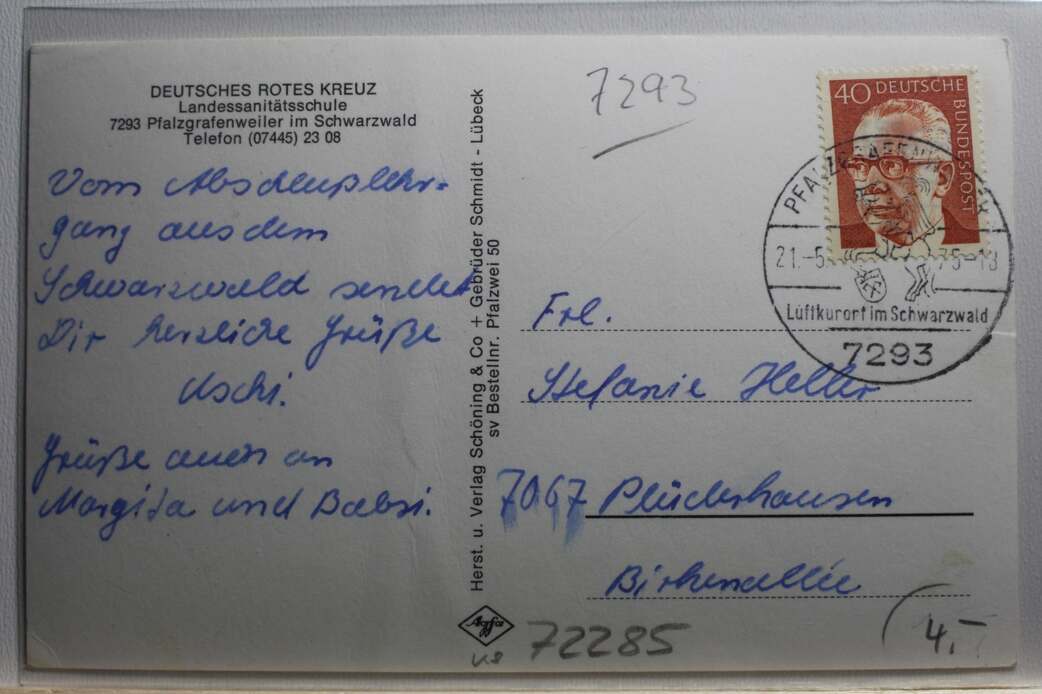 DEUTSCHES ROTES KREUZ
Landessanitätsschule
7293 Pfalzgrafenweiler im Schwarzwald
Telefon (07445) 23 08
Vom Abschlußlehr-
gang aus dem
Schwarzwald sendet
Dir herzliche Grüße
Uschi.
Grüße auch an
Margita und Babsi.
Herst. u. Verlag Schöning & Co + Gebrüder Schmidt - Lübeck
sv Bestellnr. Pfalzwei 50
Agfa
7293
40 DEUTSCHE BUNDESPOST
PFALZGRAFENWEILER
21.-5. 75-18
Luftkurort im Schwarzwald
7293
Frl.
Stefanie Heller
7067 Plüderhausen
Birkenallee
72285
4,-